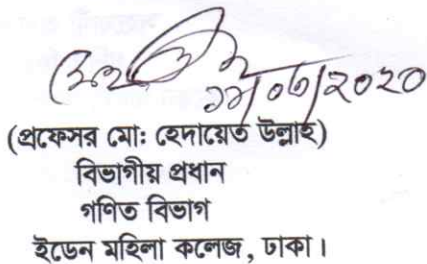 (প্রফেসর মো: হেদায়েত উল্লাহ)
বিভাগীয় প্রধান
গণিত বিভাগ
ইডেন মহিলা কলেজ, ঢাকা।